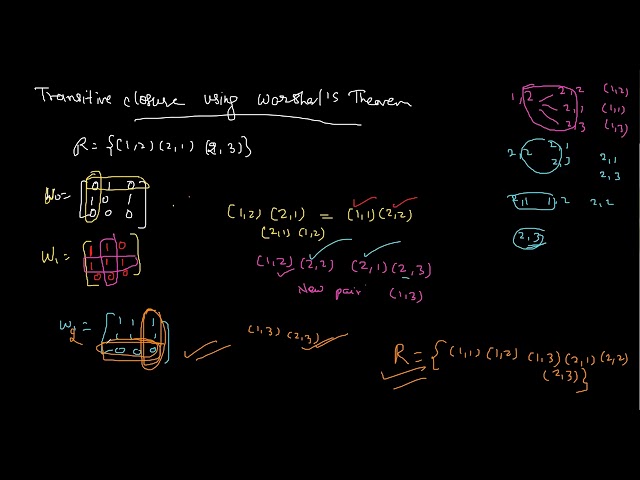 Transitive closure using Warshal's Theorem
R = {(1,2) (2,1) (2,3)}
W0 = [0 1 0
1 0 1
0 0 0]
(1,2) (2,1) = (1,1) (2,2)
(2,1) (1,2)
W1 = [1 1 0
1 1 1
0 0 0]
(1,2) (2,2) (2,1) (2,3)
New pair (1,3)
W2 = [1 1 1
1 1 1
0 0 0]
(1,3) (2,3)
R = { (1,1) (1,2) (1,3) (2,1) (2,2)
(2,3)}
1,2 2,2 (1,2)
2,1 (1,1)
2,3 (1,3)
2,2 2,1 2,1
2,3 2,3
2,1 1,2 2,2
2,3